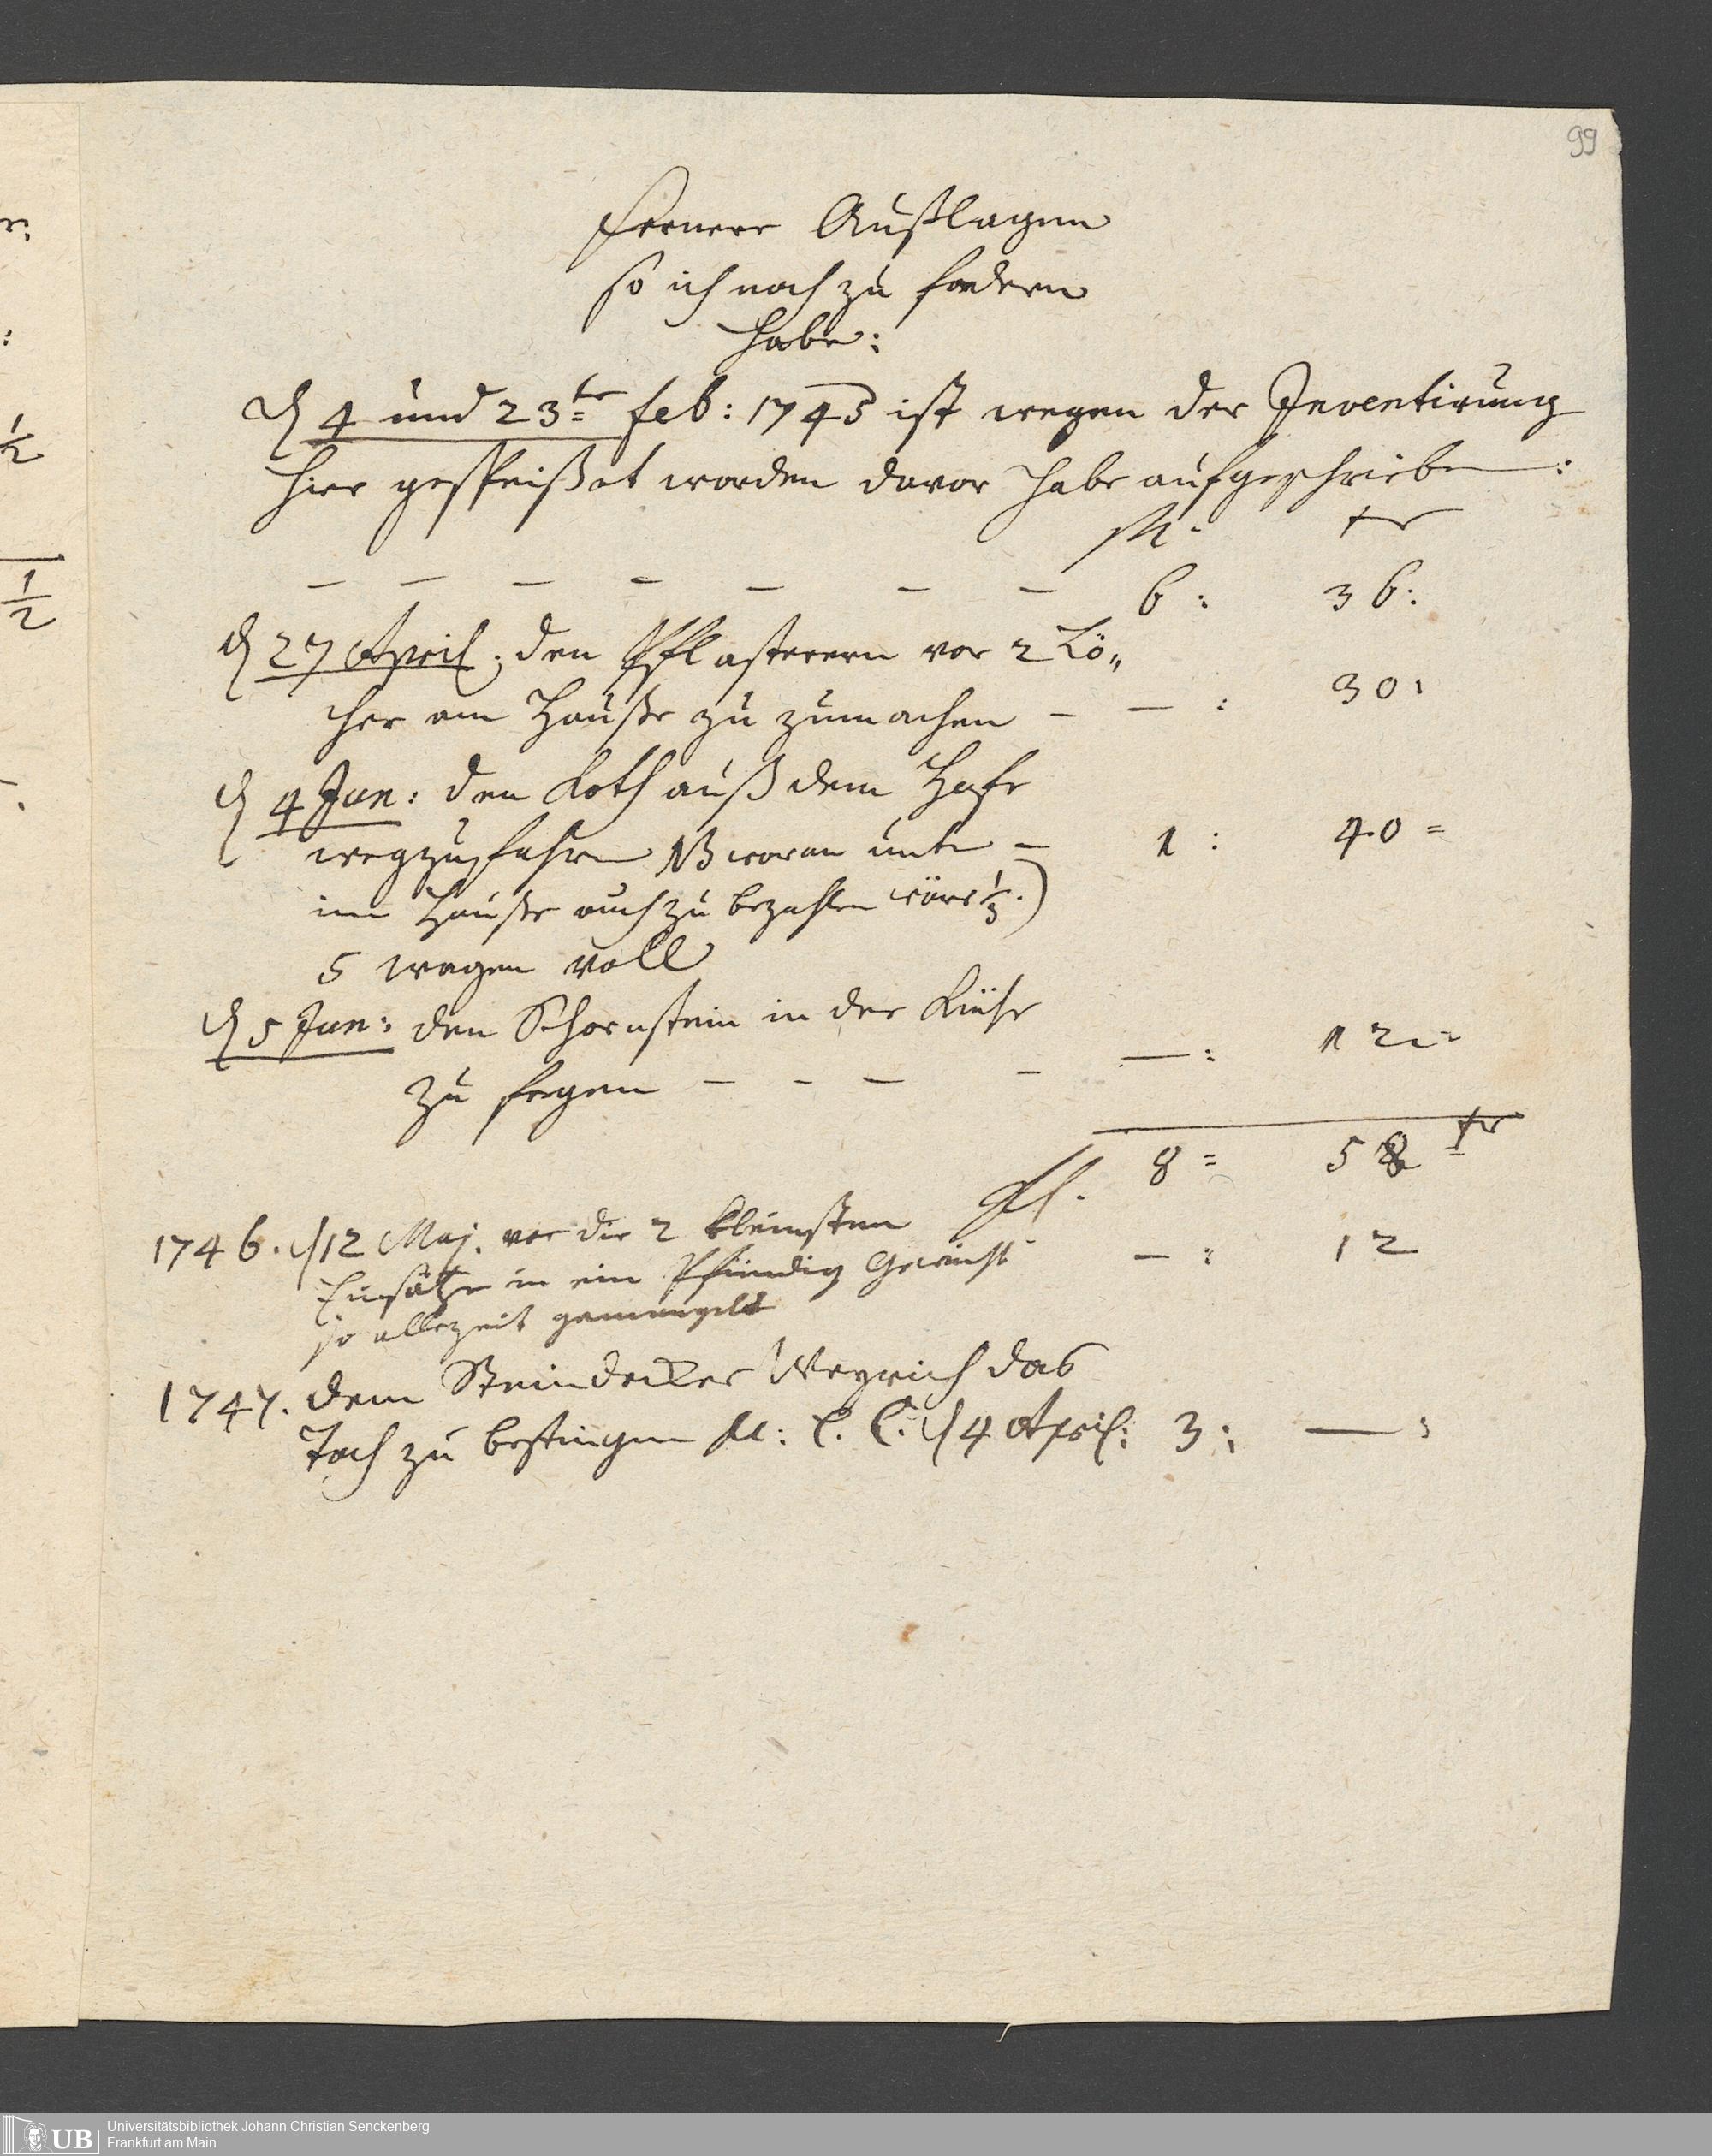 99
Fernere Außlagen
so ich noch zu fodern
habe:
d 4 und 23ten feb: 1745 ist wegen der Inventirung
hier gespeißet worden davor habe aufgeschrieben:
fl. xr
— — — — — — — 6: 36:
d 27 April: den Pflasterern vor 2 Lö„
cher am Hauße zu zumachen — — : 30:
d 4 Jun: den Koth auß dem Hofe
wegzuführen NB woran unten — 1: 40=
im Hauße auch zu bezahlen wäre 1/3.)
5 wagen voll
d 5 Jun: den Schornstein in der Küche
zu fegen — — — — —: 12=
fl. 8= 58 xr
1746. d 12 Maj. vor die 2 kleinsten
Einsätze in ein Pfündig Gewicht — : 12
so allezeit gemangelt
1747. dem Steindecker Weyrich das
Tach zu bestiegen d 4 April: 3: — :
r:
:
1/2
1/2
UB Universitätsbibliothek Johann Christian Senckenberg
Frankfurt am Main